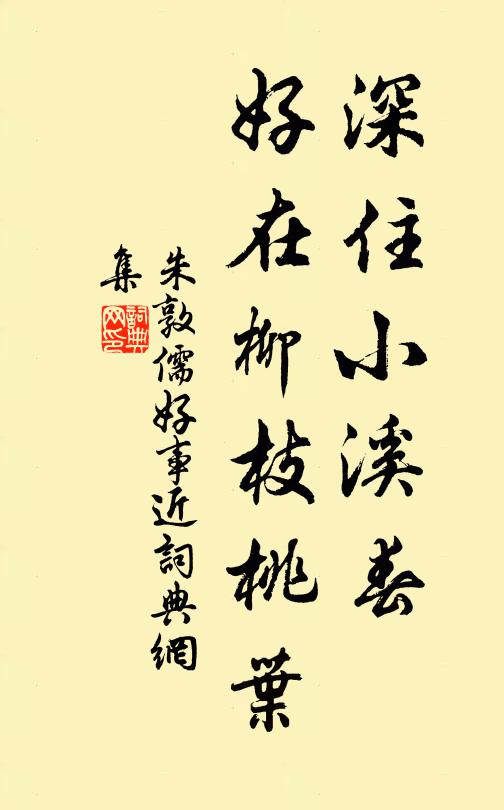 深住小溪春
好在柳枝桃葉
朱敦儒好事近詞典網
集
詞典網印